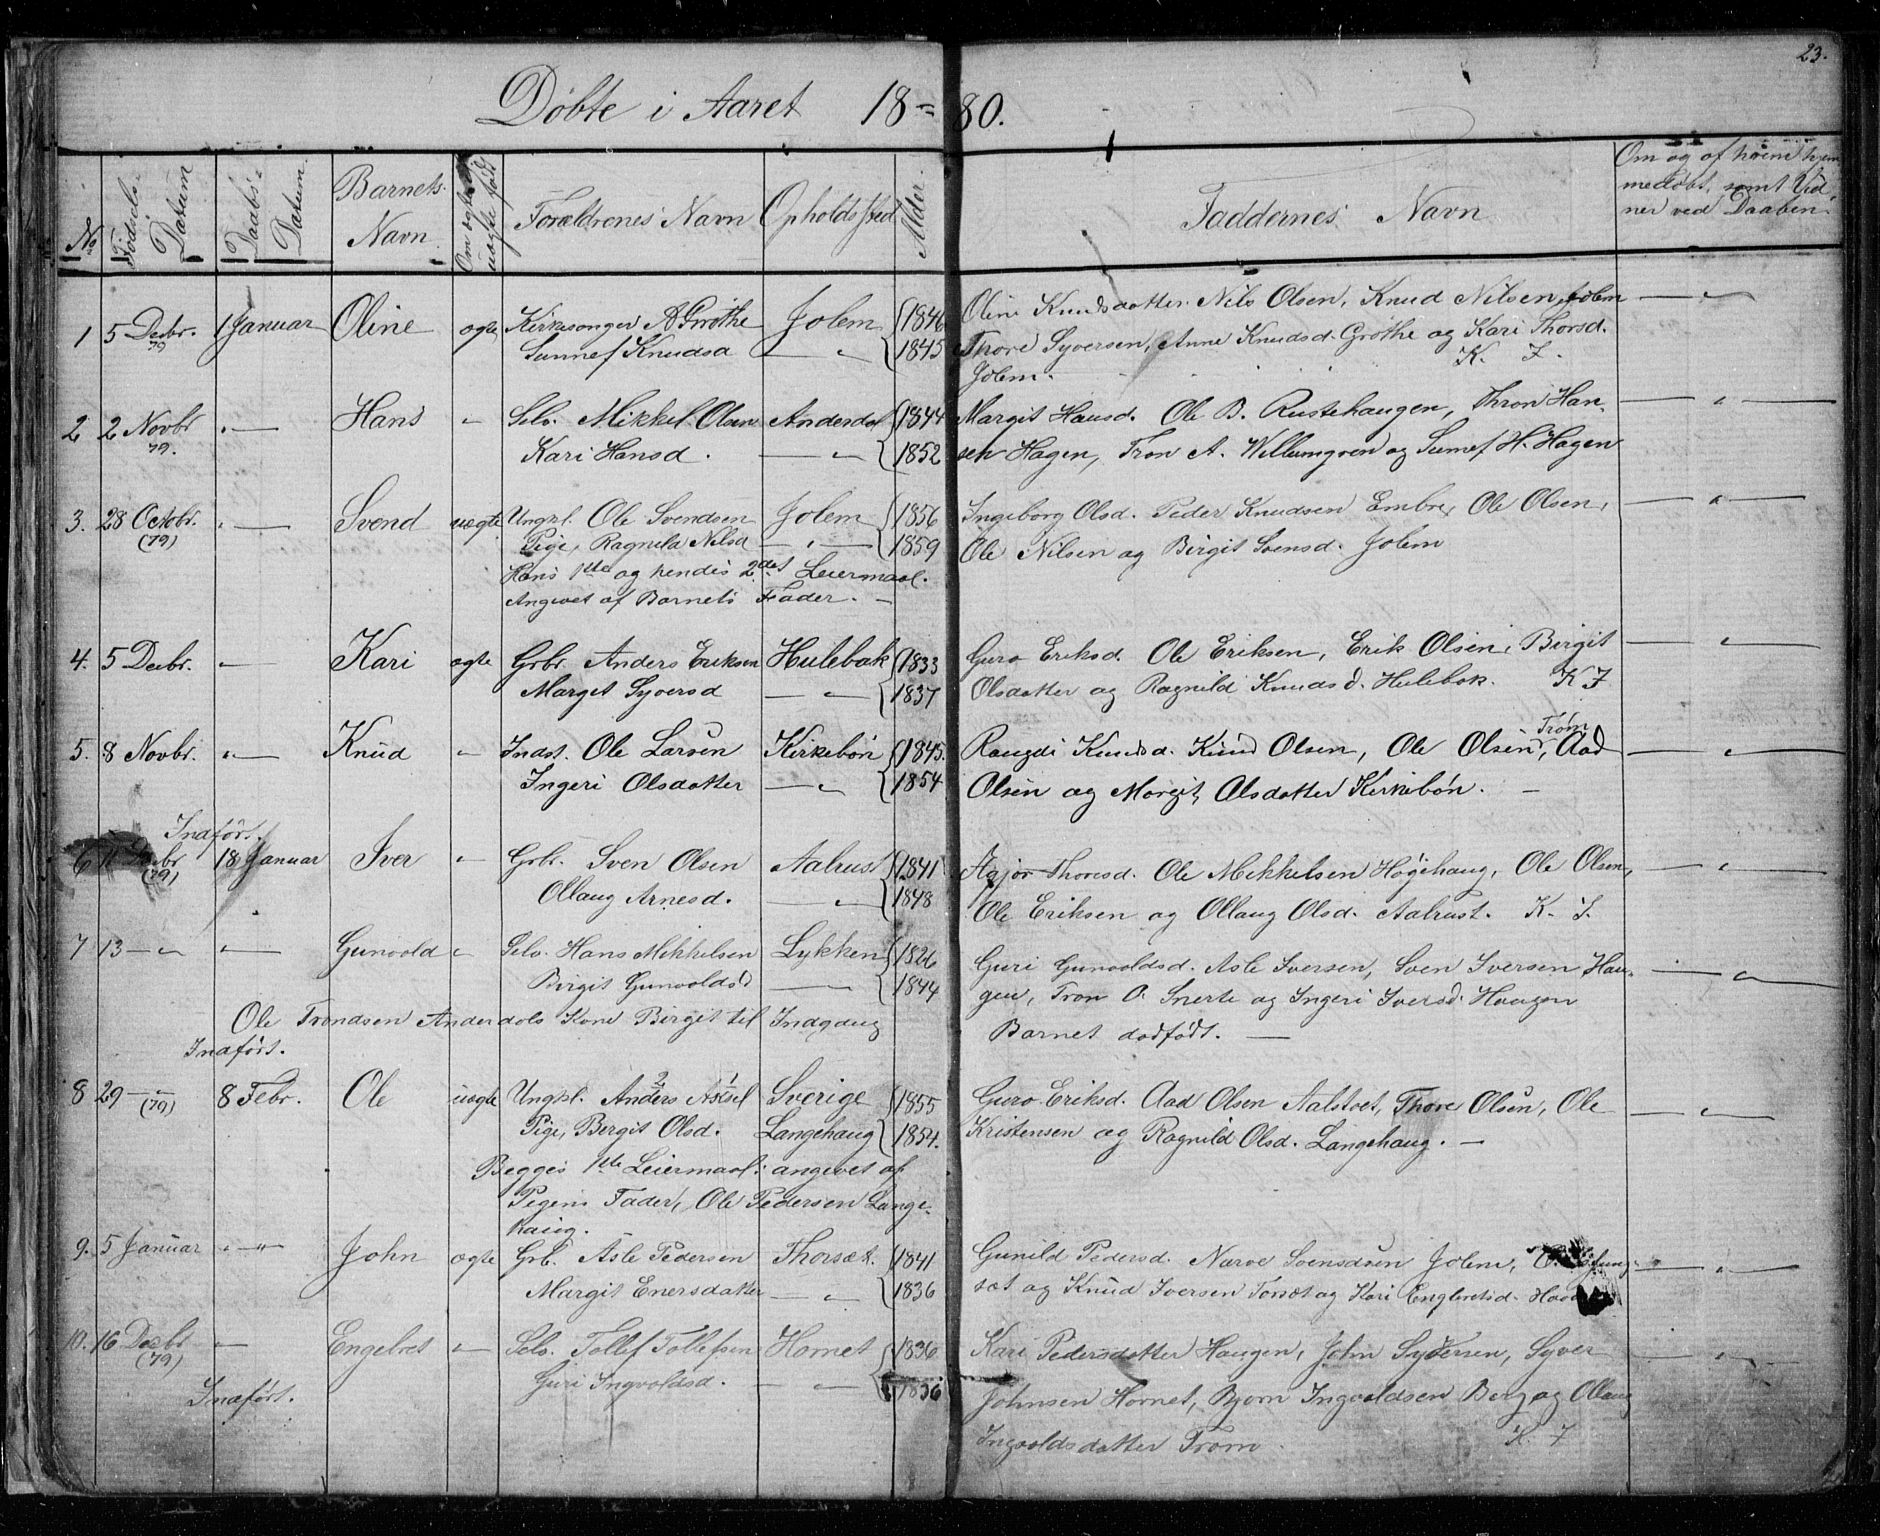 23.
Døbte i Aaret 18=80.
No
Fødsels-Datum
Daabs-Datum
Barnets Navn
Om ægte uægte født
Forældrenes Navn
Opholdssted
Alder.
Faddernes Navn
Om og af hvem hjem
medøbt, samt Vid
ner ved Daaben.
1 5 Decbr. 79 1 Januar Oline ægte Kirkesanger A Grøthe Jolem 1846 Oline Knudsdatter. Nils Olsen, Knud Nilsen Jolem
Sunnef Knudsd 1845 Thore Syversen, Anne Knudsd. Grøthe og Kari Thorsd.
Jolem. K. I.
2 2 Novbr 79. Hans Selv. Mikkel Olsen Anderdal 1844 Margit Hansd. Ole B. Rustehaugen, Thron Han-
Kari Hansd. 1852 sen Hagen, Tron A. Willumgven og Sunnef H. Hagen
3. 28 Octobr. (79) Svend uægte Ungkl. Ole Svendsen Jolem 1856 Ingeborg Olsd. Peder Knudsen Embre, Ole Olsen,
Pige, Ragnild Nilsd 1859 Ole Nilsen og Birgit Svensd. Jolem
Hans 1ste og hendes 2det Leiermaal.
Angivet af Barnets Fader.
4. 5 Decbr. Kari ægte Grbr. Anders Eriksen Hulebak 1833 Guro Eriksd. Ole Eriksen, Erik Olsen, Birgit
Marget Syversd 1837 Olsdatter og Ragnild Knudsd. Hulebak. K I
5. 8 Novbr. Knud Indst. Ole Larsen Kirkebøn 1845. Rangdi Knudsd. Knud Olsen, Ole Olsen Trøm, Aad
Ingeri Olsdatter 1854 Olsen og Margit Olsdatter Kirkebøn.
Indført.
6 11 Decbr (79) 18 Januar Iver Grbr. Sven Olsen Aalrust 1841 Asjør Thoresd. Ole Mikkelsen Høgehaug, Ole Olsen,
Ollaug Arnesd. 1848 Ole Eriksen og Ollaug Olsd. Aalrust. K. I.
7 13 Gunvold Selv. Hans Mikkelsen Lykken 1826 Guri Gunvoldsd. Asle Iversen, Sven Iversen Hau-
Birgit Gunvoldsd 1844 gen, Tron O. Snerte og Ingeri Iversd. Haugen
Ole Trondsen Anderdals Kone Birgit til Indgang Barnet dødfødt.
Indført.
8 29 (79) 8 Febr. Ole uægte Ungkl. Anders 2 Aksel 1 Sverige 1855 Guro Eriksd. Aad Olsen Aalstvet, Thore Olsen, Ole
Pige, Bergit Olsd. Langehaug 1854. Kristensen og Ragnild Olsd. Langehaug.
Begges 1ste Leiermaal; angivet af
Pigens Fader, Ole Pedersen Lange-
haug.
9. 5 Januar John ægte Grb. Asle Pedersen Thorsæt. 1841 Gunild Pedersd. Narve Svendsen Jolem,
Margit Enersdatter 1836 sæt og Knud Iversen Torsæt og Kari Engbretsd.
10. 16 Decbr (79) Engebret Selv. Tollef Tollefsen Hornet 1836 Kari Pedersdatter Haugen, John Syversen, Syver
Guri Ingvoldsd. 1836 Johnsen Hornet, Bjørn Ingvoldsen Berg og Ollaug
Indført. Ingvoldsdatter Trøm. K I